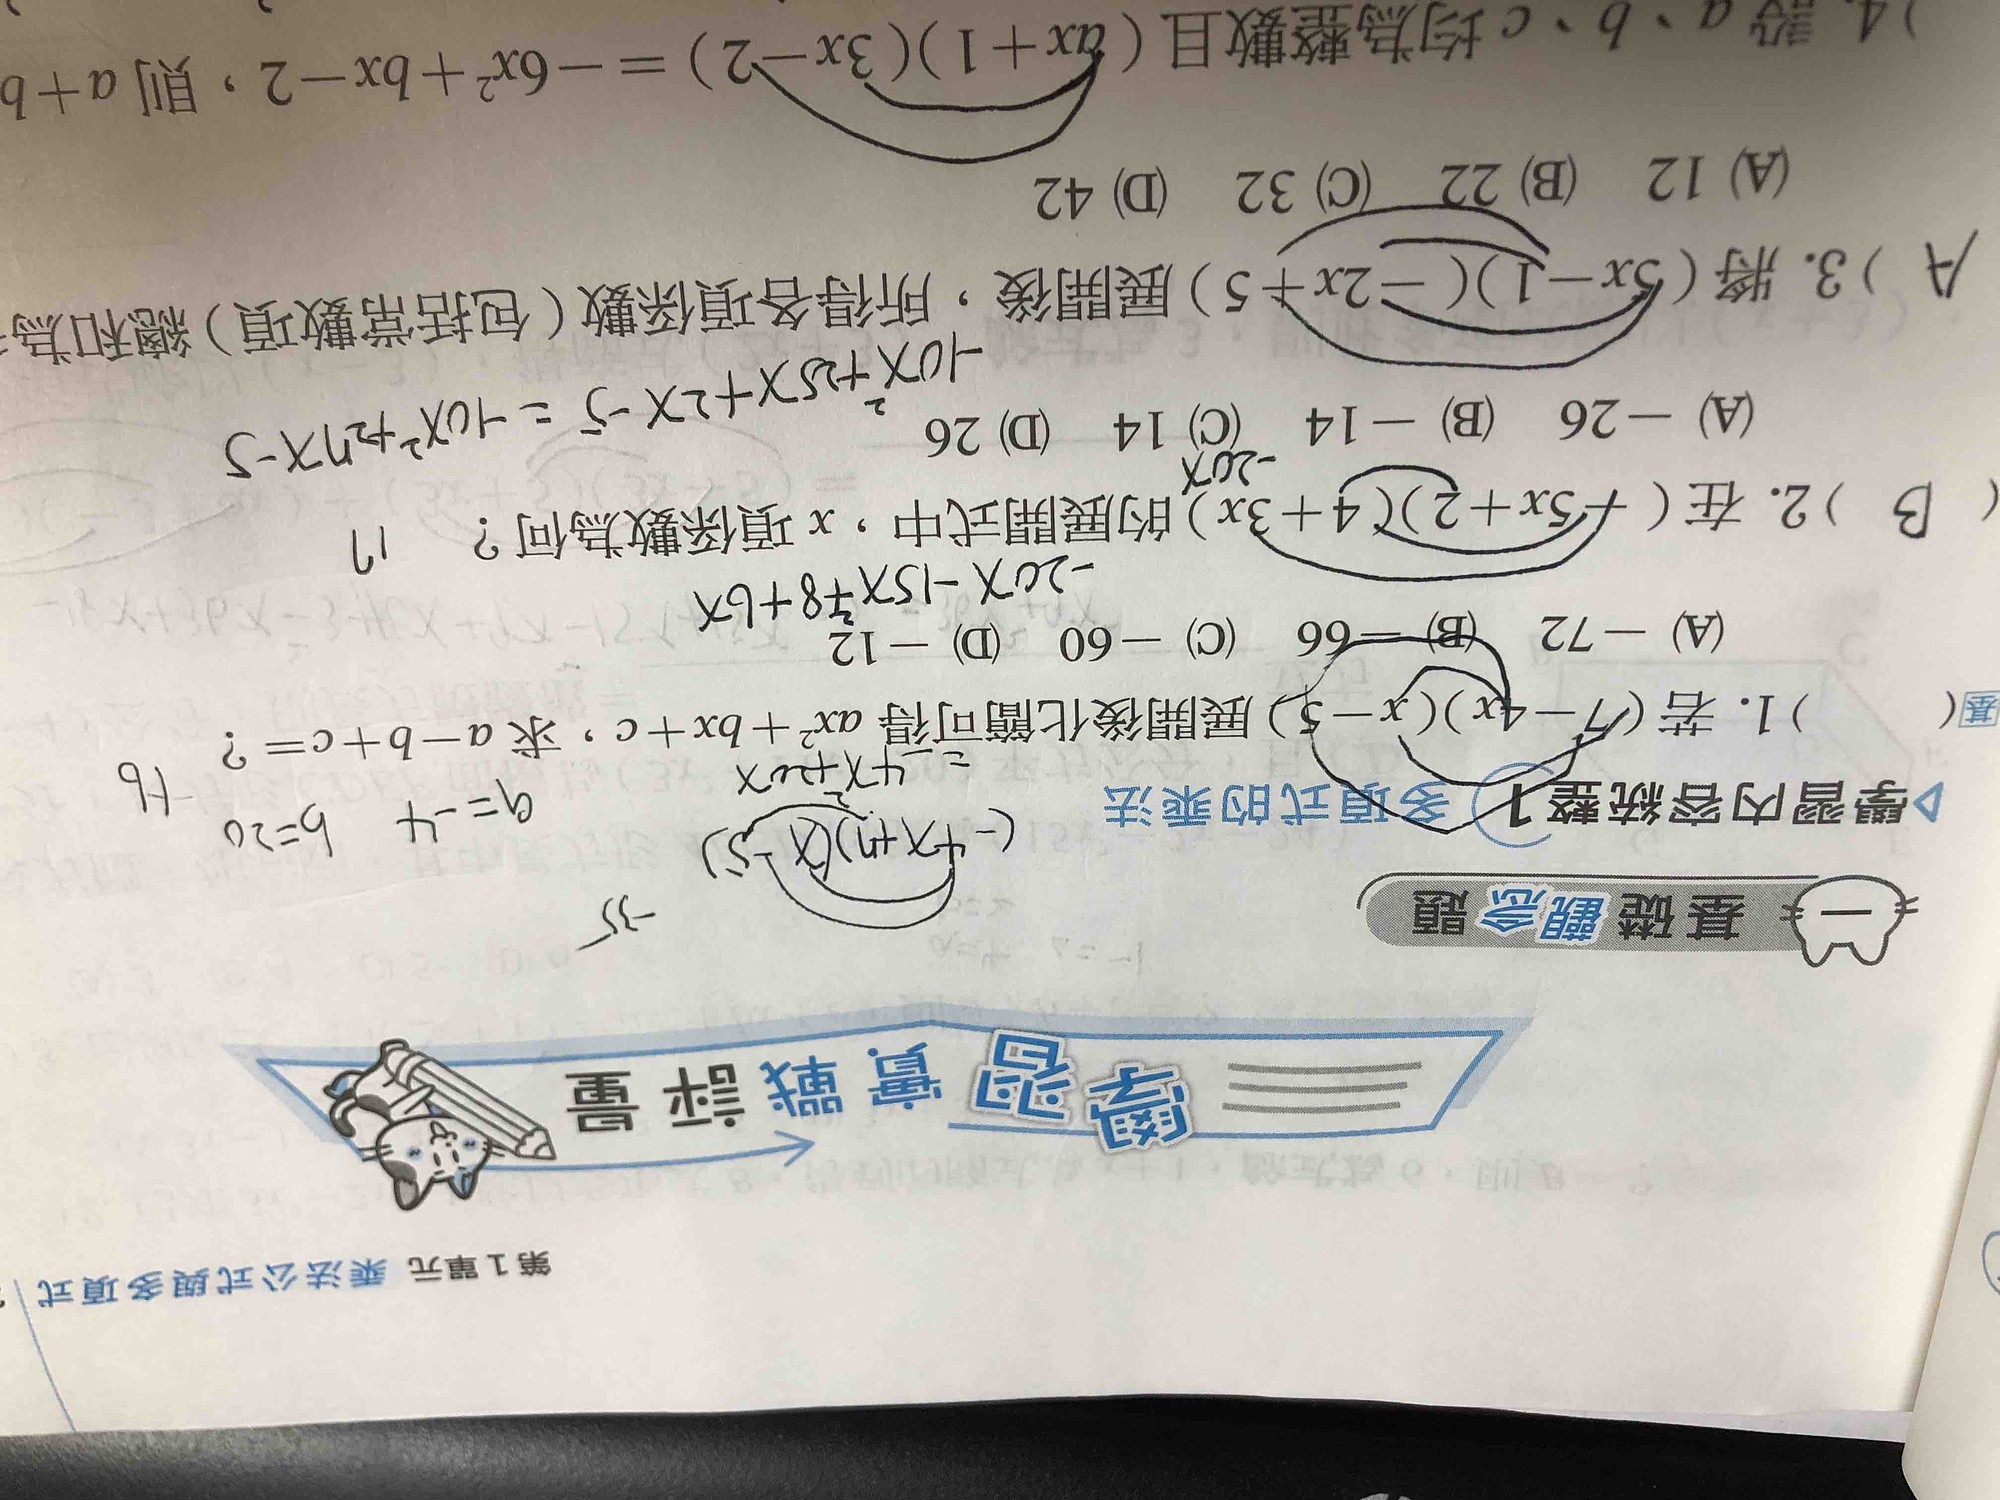 第1單元 乘法公式與多項式
學習實戰評量
一 基礎觀念題
-35
▷學習內容統整1 多項式的乘法
(-4x+7)(x-5)
a=-4 b=20
=-4x²+20x
-16
基( )1. 若(7-4x)(x-5)展開後化簡可得 ax²+bx+c，求 a-b+c=？
(A) -72 (B) -66 (C) -60 (D) -12
-20x-15x²+8+6x
( B )2. 在(-5x+2)(4+3x)的展開式中，x 項係數為何？ 17
-20x
(A) -26 (B) -14 (C) 14 (D) 26
-10x²+25x+2x-5 = -10x²+27x-5
A )3. 將(5x-1)(-2x+5)展開後，所得各項係數(包括常數項)總和為
(A) 12 (B) 22 (C) 32 (D) 42
)4. 設 a、b、c 均為整數且(ax+1)(3x-2)=-6x²+bx-2，則 a+b